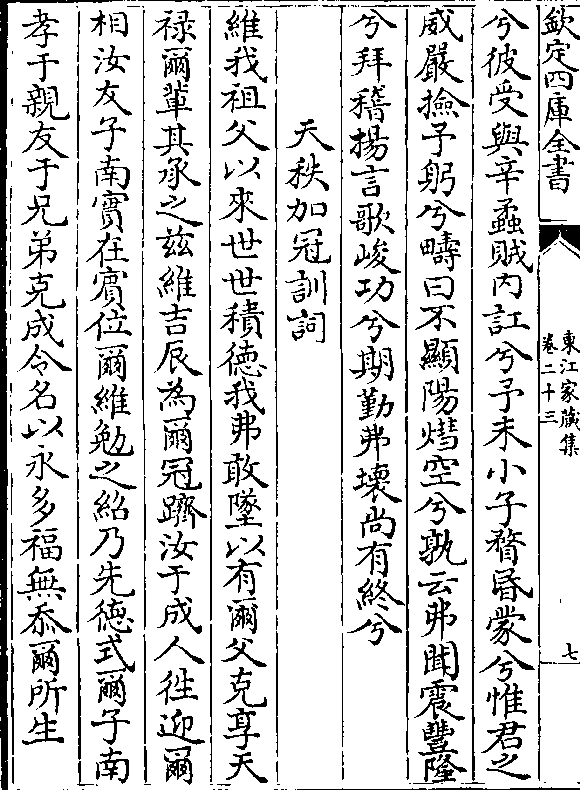 欽定四庫全書
東江家藏集
卷二十三
七
兮彼受與辛蟊賊内訌兮予未小子瞀昬蒙兮惟君之
威嚴撿予躬兮疇曰不顯陽熸空兮孰云弗聞震豐隆
兮拜稽揚言歌峻功兮期勤弗壊尚有終兮
天秩加冠訓詞
維我祖父以來世世積德我弗敢墜以有爾父克享天
禄爾輩其承之兹維吉辰為爾冠躋汝于成人徃迎爾
相汝友子南實在賓位爾維勉之紹乃先德式爾子南
孝于親友于兄弟克成令名以永多福無忝爾所生